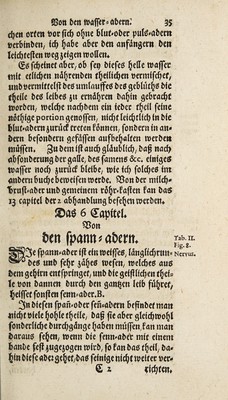 Von den wasser-adern. 35
chen orten vor sich ohne blut-oder puls-adern
verbinden, ich habe aber den anfängern den
leichtesten weg zeigen wollen.
Es scheinet aber, ob sey dieses helle wasser
mit etlichen nährenden theilichen vermischet,
und vermittelst des umlauffes des geblüths die
theile des leibes zu ernähren dahin gebracht
worden, welche nachdem ein ieder theil seine
nöthige portion genossen, nicht leichtlich in die
blut-adern zurück treten können, sondern in an-
dern besondern gefässen aufbehalten werden
müssen. Zu dem ist auch gläublich, daß nach
absonderung der galle, des samens &c. einiges
wasser noch zurück bleibe, wie ich solches im
andern buche beweisen werde. Von der milch-
brust-ader und gemeinem röhr-kasten kan das
13 capitel der 2 abhandlung besehen werden.
Das 6 Capitel.
Von
den spann-adern.
Tab. II.
Fig. 8.
DJe spann-ader ist ein weisses, länglichrun-
Nervus.
des und sehr zähes wesen, welches aus
dem gehirn entspringer, und die geistlichen thei-
le von dannen durch den gantzen leib führet,
heisset sonsten senn-ader. B.
In diesen spañ-oder seinadern befindet man
nicht viele hohle theile, daß sie aber gleichwohl
sonderliche durchgänge haben müssen, kan man
daraus sehen, wenn die senn-ader mit einem
bande fest zugezogen wird, so kan das theil, da-
hin diese ader gehet, das seinige nicht weiter ver-
C 2 richten.